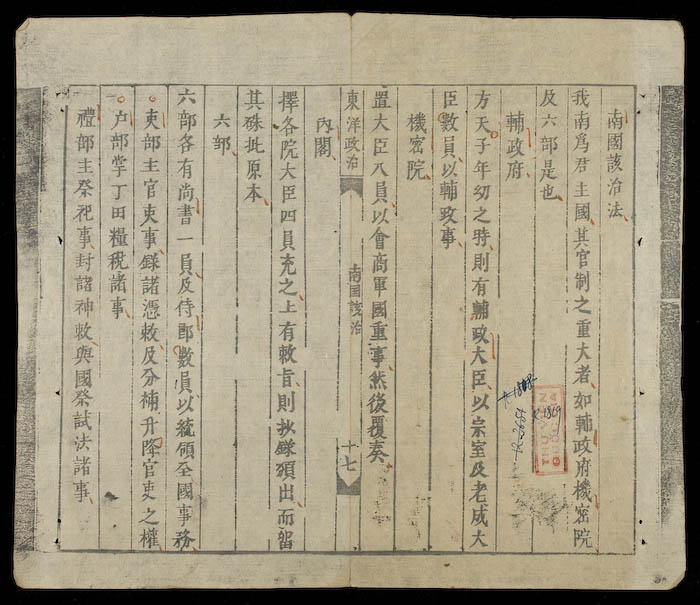 南國該治法
我南爲君主國其官制之重大者如輔政府機密院
及六部是也
輔政府
方天子年幼之時則有輔政大臣以宗室及老成大
臣數員以輔政事
機密院
置大臣八員以會商軍國重事然後覆奏
東洋政治
南国該治
十七
內閣
擇各院大臣四員充之上有敕旨則抄錄頒出而留
其硃批原本
六部
六部各有尚書一員及侍郎數員以統領全國事務
吏部主官吏事錄諸憑敕及分補升降官吏之權
户部掌丁田糧稅諸事
禮部主祭祀事封諸神敕與國祭試法諸事
THU VIEN
QUOC GIA
R.1869